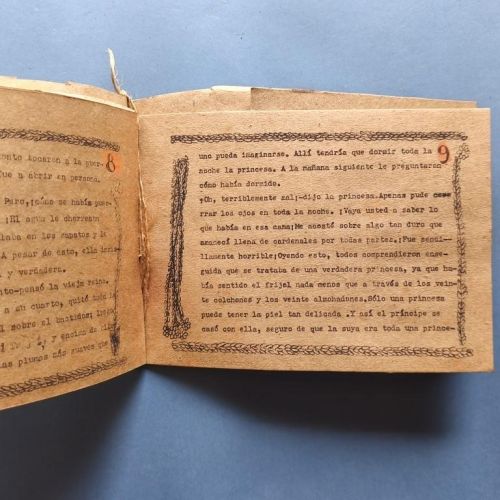 8
onto tocaron a la puer-
fue a abrir en persona.
Pero, ¡cómo se había pues-
¡El agua le chorreaba
en los zapatos y le
A pesar de esto, ella
y verdadera.
-pensó la vieja reina.
a su cuarto, quitó toda
sobre el bastidor;
y encima de
plumas más suaves que
9
uno pueda imaginarse. Allí tendría que dormir toda la
noche la princesa. A la mañana siguiente le preguntaron
cómo había dormido.
¡Oh, terriblemente mal;-dijo la princesa.Apenas pude
rrar los ojos en toda la noche. ¡Vaya usted a saber lo
que había en esa cama;Me acosté sobre algo tan duro que
amanecí llena de cardenales por todas partes.¡Fue senci-
llamente horrible;Oyendo esto, todos comprendieron ense-
guida que se trataba de una verdadera princesa, ya que ha-
bía sentido el frijol nada menos que a través de los vein-
te colchones y los veinte almohadones.Sólo una princesa
puede tener la piel tan delicada. .Y así el príncipe se
casó con ella, seguro de que la suya era toda una prince-